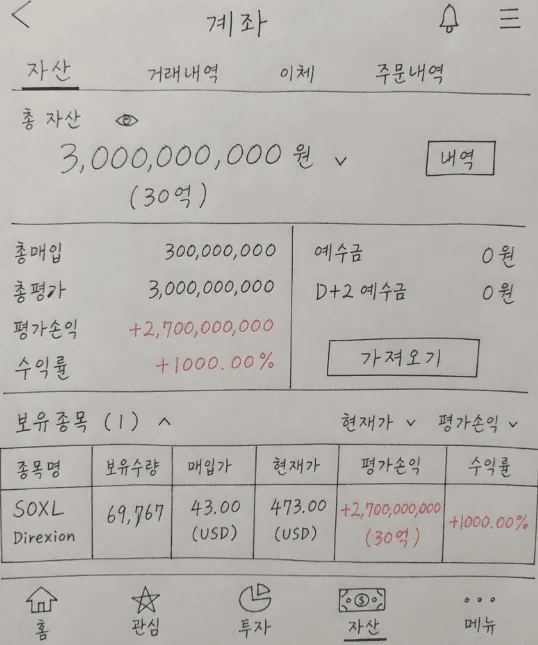 계좌
자산 거래내역 이체 주문내역
총 자산
3,000,000,000 원
(30억)
내역
총매입 300,000,000
총평가 3,000,000,000
평가손익 +2,700,000,000
수익률 +1000.00%
예수금 0원
D+2 예수금 0원
가져오기
보유종목 (1) 현재가 평가손익
종목명 보유수량 매입가 현재가 평가손익 수익률
SOXL 69,767 43.00 473.00 +2,700,000,000 +1000.00%
Direxion (USD) (USD) (30억)
홈 관심 투자 자산 메뉴